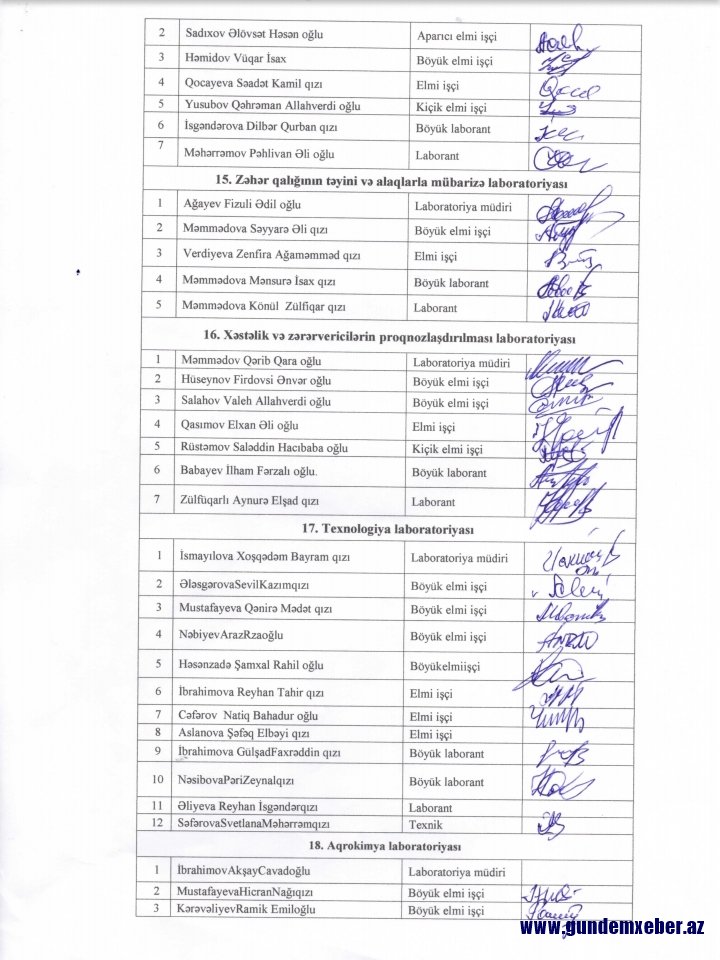 2 Sadıxov Əlövsət Həsən oğlu Aparıcı elmi işçi
3 Həmidov Vüqar İsax Böyük elmi işçi
4 Qocayeva Səadət Kamil qızı Elmi işçi
5 Yusubov Qəhrəman Allahverdi oğlu Kiçik elmi işçi
6 İsgəndərova Dilbər Qurban qızı Böyük laborant
7 Məhərrəmov Pəhlivan Əli oğlu Laborant
15. Zəhər qalığının təyini və alaqlarla mübarizə laboratoriyası
1 Ağayev Fizuli Ədil oğlu Laboratoriya müdiri
2 Məmmədova Səyyarə Əli qızı Böyük elmi işçi
3 Verdiyeva Zenfira Ağaməmməd qızı Elmi işçi
4 Məmmədova Mənsurə İsax qızı Böyük laborant
5 Məmmədova Könül Zülfiqar qızı Laborant
16. Xəstəlik və zərərvericilərin proqnozlaşdırılması laboratoriyası
1 Məmmədov Qərib Qara oğlu Laboratoriya müdiri
2 Hüseynov Firdovsi Ənvər oğlu Böyük elmi işçi
3 Salahov Valeh Allahverdi oğlu Böyük elmi işçi
4 Qasımov Elxan Əli oğlu Elmi işçi
5 Rüstəmov Saləddin Hacıbaba oğlu Kiçik elmi işçi
6 Babayev İlham Fərzalı oğlu. Böyük laborant
7 Zülfüqarlı Aynurə Elşad qızı Laborant
17. Texnologiya laboratoriyası
1 İsmayılova Xoşqədəm Bayram qızı Laboratoriya müdiri
2 ƏləsgərovaSevilKazımqızı Böyük elmi işçi
3 Mustafayeva Qənirə Mədət qızı Böyük elmi işçi
4 NəbiyevArazRzaoğlu Böyük elmi işçi
5 Həsənzadə Şamxal Rahil oğlu Böyükelmiişçi
6 İbrahimova Reyhan Tahir qızı Elmi işçi
7 Cəfərov Natiq Bahadur oğlu Elmi işçi
8 Aslanova Şəfəq Elbəyi qızı Elmi işçi
9 İbrahimova GülşadFaxrəddin qızı Böyük laborant
10 NəsibovaPəriZeynalqızı Böyük laborant
11 Əliyeva Reyhan İsgəndərqızı Laborant
12 SəfərovaSvetlanaMəhərrəmqızı Texnik
18. Aqrokimya laboratoriyası
1 İbrahimovAkşayCavadoğlu Laboratoriya müdiri
2 MustafayevaHicranNağıqızı Böyük elmi işçi
3 KərəvəliyevRamik Emiloğlu Böyük elmi işçi
www.gundemxeber.az